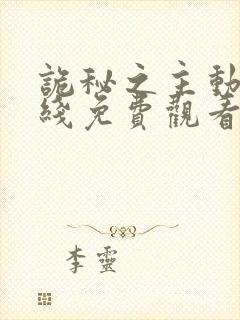 詭秘之主動
綫免費觀看
李靈